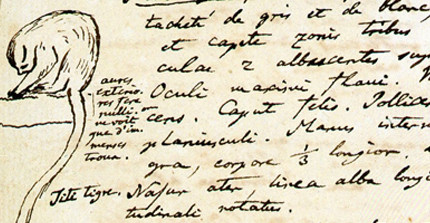 tacheté de gris et de blanc,
et capite zonis tribus
culae 2 albescentes sup
Oculi maximi flavi.
cens. Caput felis. Pollices
planiusculi. Manus intern
gra, corpore 1/3 longior,
Nasus ater, linea alba longi
tudinali notatus.
aures
exterio
res fere
nullis on
ne voit
que d'im.
menses
trous.
Titi tigre.